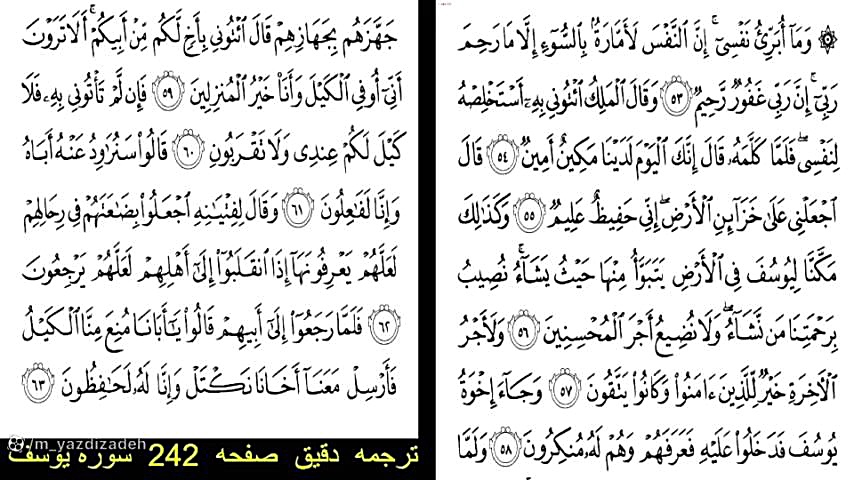 ۞ وَمَآ أُبَرِّئُ نَفۡسِيٓۚ إِنَّ ٱلنَّفۡسَ لَأَمَّارَةُۢ بِٱلسُّوٓءِ إِلَّا مَا رَحِمَ
رَبِّيٓۚ إِنَّ رَبِّي غَفُورٞ رَّحِيمٞ ٥٣ وَقَالَ ٱلۡمَلِكُ ٱئۡتُونِي بِهِۦٓ أَسۡتَخۡلِصۡهُ
لِنَفۡسِيۖ فَلَمَّا كَلَّمَهُۥ قَالَ إِنَّكَ ٱلۡيَوۡمَ لَدَيۡنَا مَكِينٌ أَمِينٞ ٥٤ قَالَ
ٱجۡعَلۡنِي عَلَىٰ خَزَآئِنِ ٱلۡأَرۡضِۖ إِنِّي حَفِيظٌ عَلِيمٞ ٥٥ وَكَذَٰلِكَ
مَكَّنَّا لِيُوسُفَ فِي ٱلۡأَرۡضِ يَتَبَوَّأُ مِنۡهَا حَيۡثُ يَشَآءُۚ نُصِيبُ
بِرَحۡمَتِنَا مَن نَّشَآءُۖ وَلَا نُضِيعُ أَجۡرَ ٱلۡمُحۡسِنِينَ ٥٦ وَلَأَجۡرُ
ٱلۡأٓخِرَةِ خَيۡرٞ لِّلَّذِينَ ءَامَنُواْ وَكَانُواْ يَتَّقُونَ ٥٧ وَجَآءَ إِخۡوَةُ
يُوسُفَ فَدَخَلُواْ عَلَيۡهِ فَعَرَفَهُمۡ وَهُمۡ لَهُۥ مُنكِرُونَ ٥٨ وَلَمَّا
جَهَّزَهُم بِجَهَازِهِمۡ قَالَ ٱئۡتُونِي بِأَخٖ لَّكُم مِّنۡ أَبِيكُمۡۚ أَلَا تَرَوۡنَ
أَنِّيٓ أُوفِي ٱلۡكَيۡلَ وَأَنَا۠ خَيۡرُ ٱلۡمُنزِلِينَ ٥٩ فَإِن لَّمۡ تَأۡتُونِي بِهِۦ فَلَا
كَيۡلَ لَكُمۡ عِندِي وَلَا تَقۡرَبُونِ ٦٠ قَالُواْ سَنُرَٰوِدُ عَنۡهُ أَبَاهُ
وَإِنَّا لَفَٰعِلُونَ ٦١ وَقَالَ لِفِتۡيَٰنِهِ ٱجۡعَلُواْ بِضَٰعَتَهُمۡ فِي رِحَالِهِمۡ
لَعَلَّهُمۡ يَعۡرِفُونَهَآ إِذَا ٱنقَلَبُوٓاْ إِلَىٰٓ أَهۡلِهِمۡ لَعَلَّهُمۡ يَرۡجِعُونَ
٦٢ فَلَمَّا رَجَعُوٓاْ إِلَىٰٓ أَبِيهِمۡ قَالُواْ يَٰٓأَبَانَا مُنِعَ مِنَّا ٱلۡكَيۡلُ
فَأَرۡسِلۡ مَعَنَآ أَخَانَا نَكۡتَلۡ وَإِنَّا لَهُۥ لَحَٰفِظُونَ ٦٣
ترجمه دقیق صفحه 242 سوره یوسف
/m_yazdizadeh